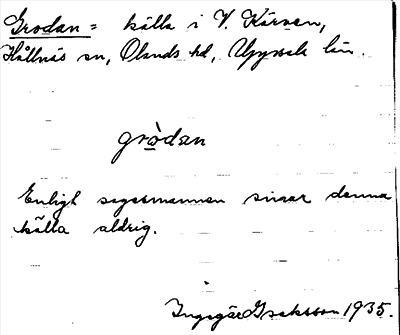 Grodan = källa i V. Kärven,
Hållnäs sn, Olands hd, Uppsala län.
grò̱dan
Enligt sagesmannen sinar denna
källa aldrig.
Ingegär Isaksson 1935.